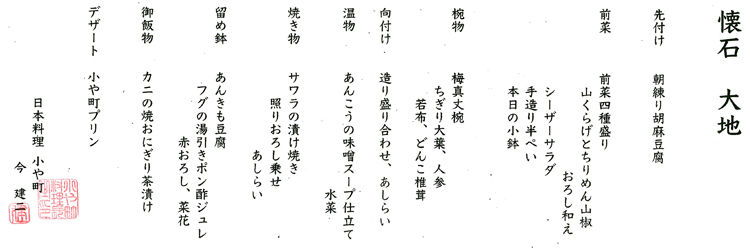 懐石 大地
先付け 朝練り胡麻豆腐
前菜 前菜四種盛り
山くらげとちりめん山椒
おろし和え
シーザーサラダ
手造り半ぺい
本日の小鉢
椀物 梅真丈椀
ちぎり大葉、人参
若布、どんこ椎茸
向付け 造り盛り合わせ、あしらい
温物 あんこうの味噌スープ仕立て
水菜
焼き物 サワラの漬け焼き
照りおろし乗せ
あしらい
留め鉢 あんきも豆腐
フグの湯引きポン酢ジュレ
赤おろし、菜花
御飯物 カニの焼おにぎり茶漬け
デザート 小や町プリン
日本料理 小や町
今 建二